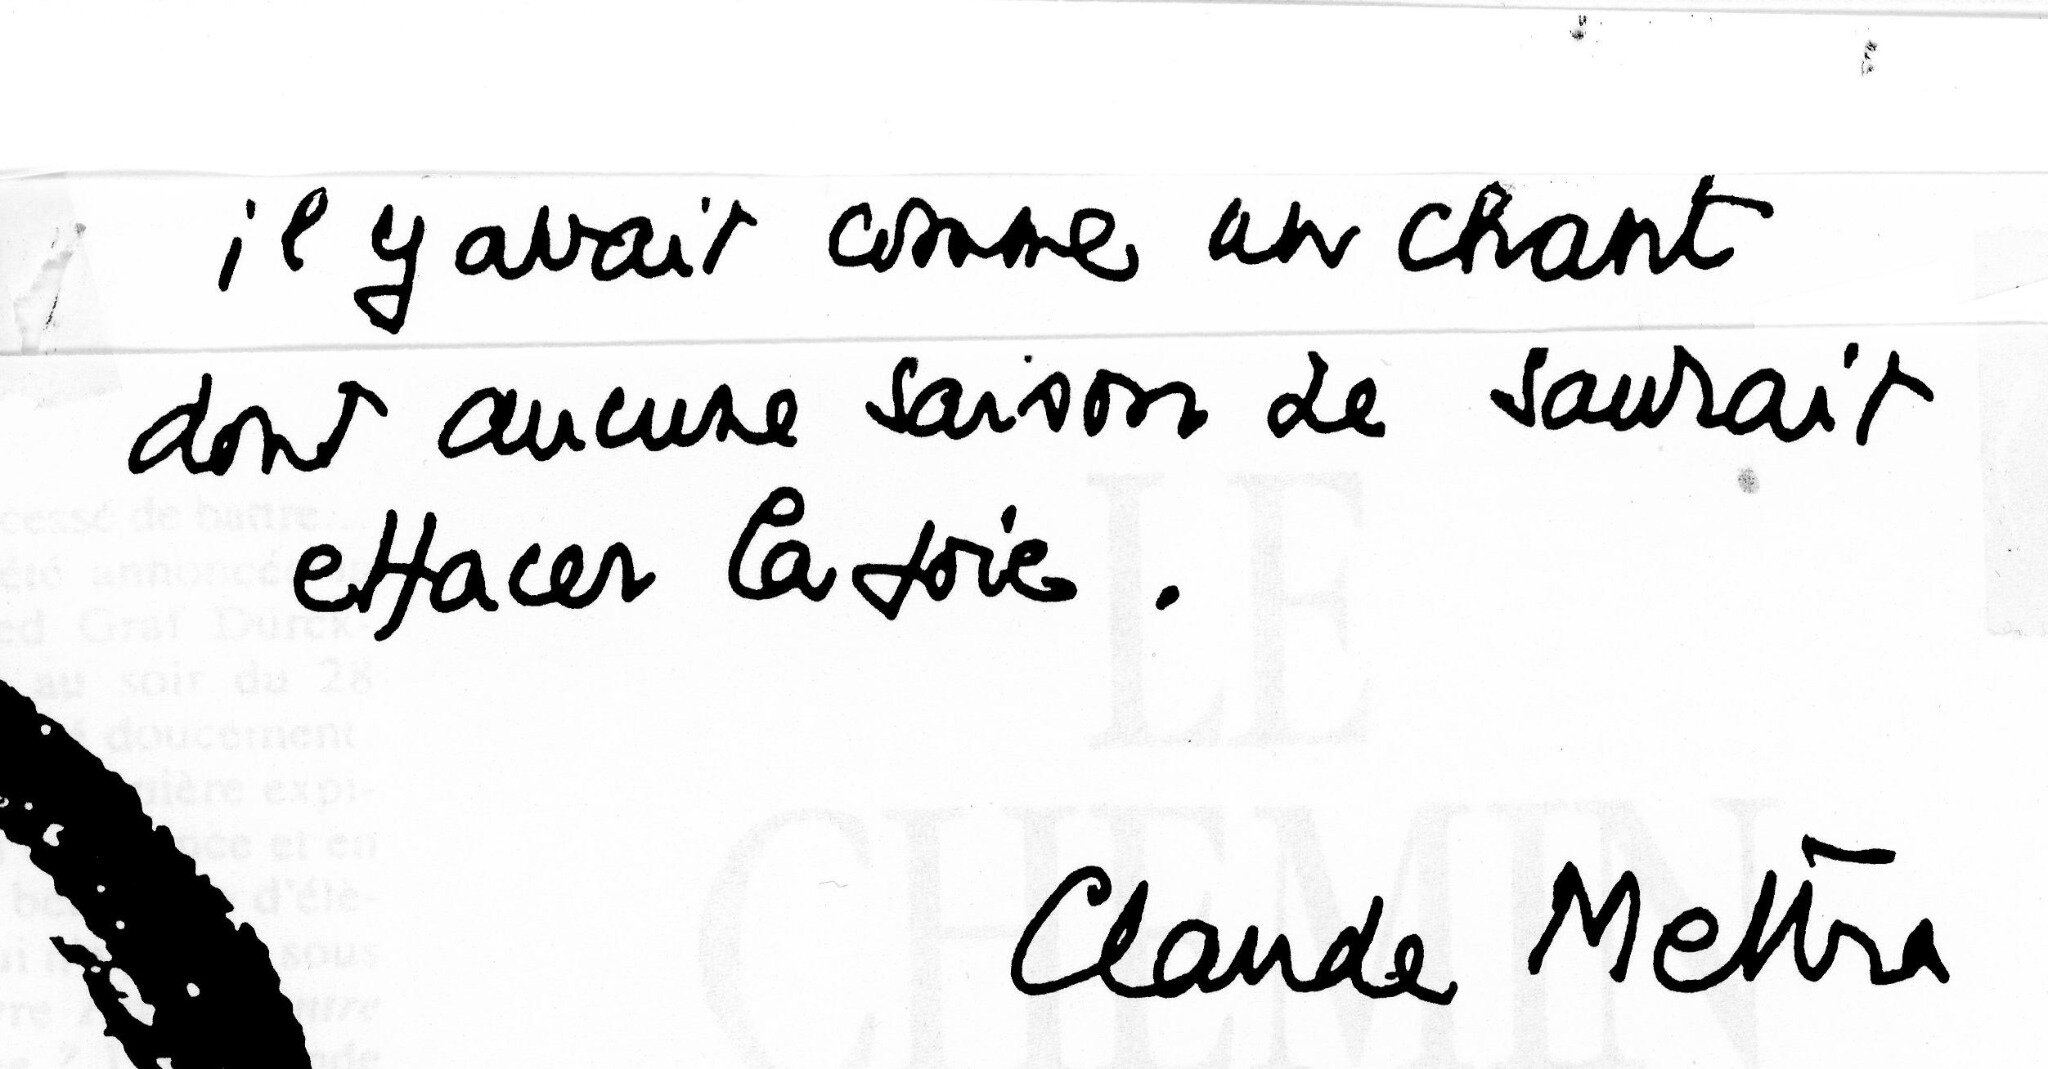 il y avait comme un chant
dont aucune saison ne saurait
effacer la joie .
cessé de battre
été annoncé
Graf Dürck-
au soir du 28
doucement
expi-
et en
sous
LE
CHEMIN
Claude Mettra